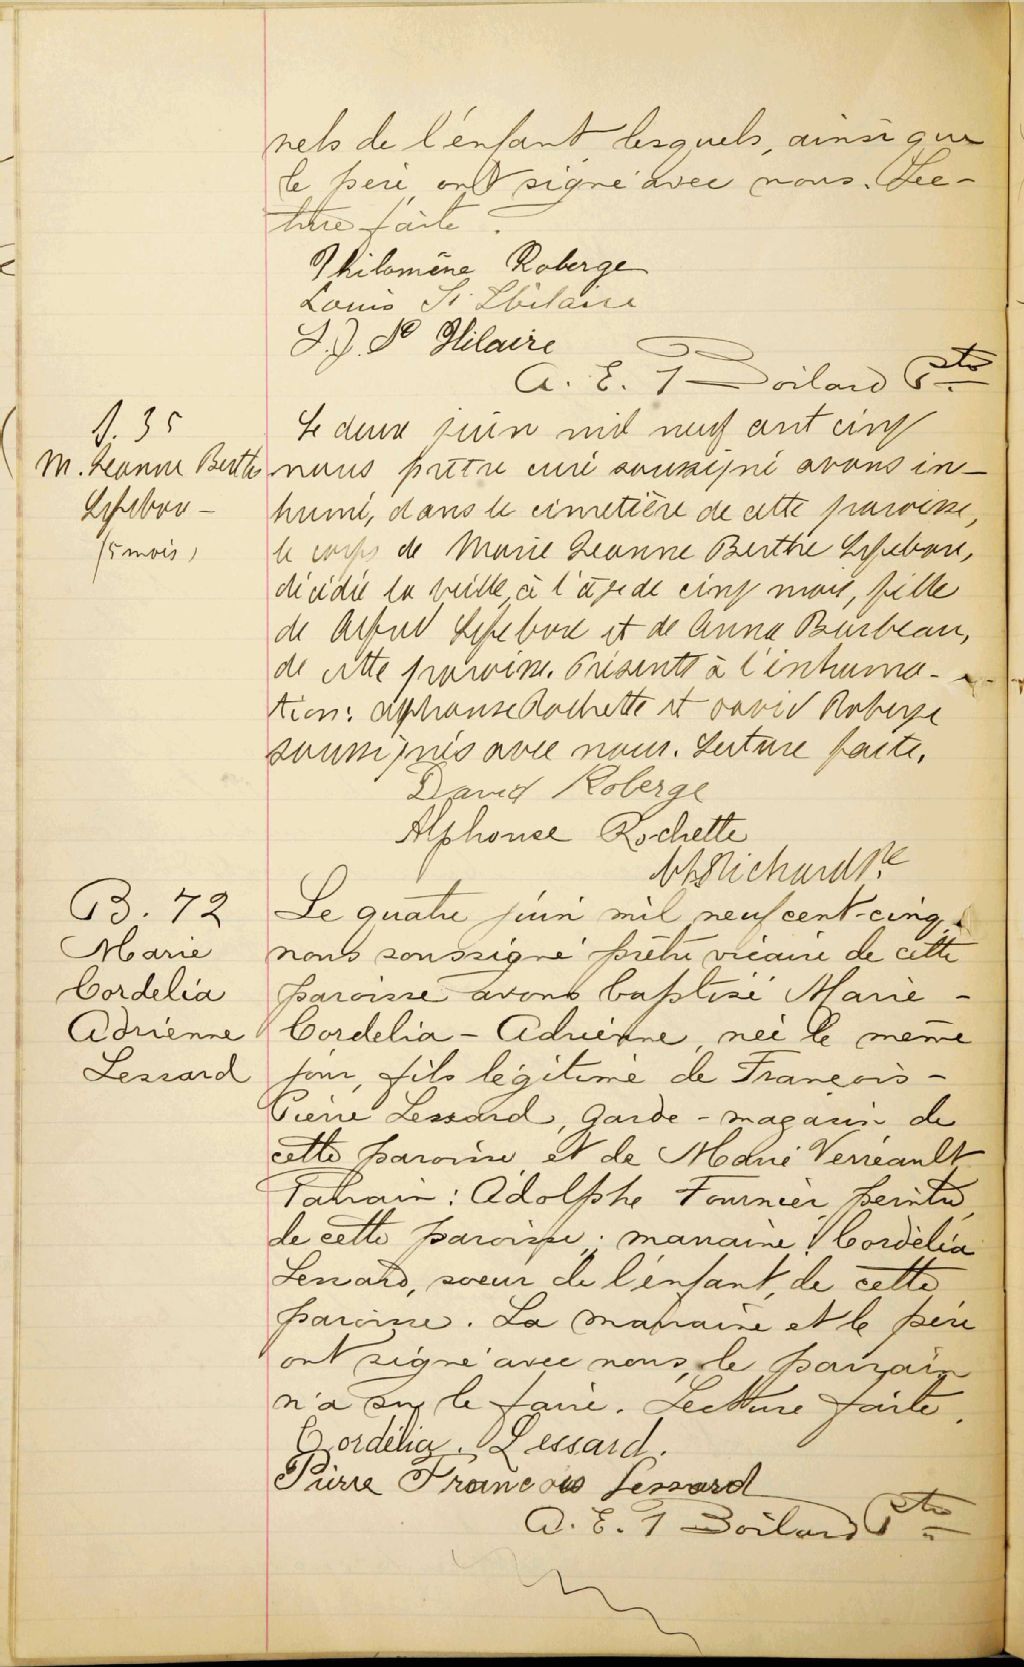 nels de l'énfant lesquels, ainsi que
le père, ont signé avec nous. Lec-
ture faite.
Philomène Roberge
Louis St Hilaire
L. J. St Hilaire
A. E. T Boilard Ptre
S. 35
M. Jeanne Berthe
Lefebvre -
(5 mois)
Le deux juin mil neuf cent cinq
nous prêtre curé soussigné avons in-
humé, dans le cimetière de cette paroisse,
le corps de Marie Jeanne Berthe Lefebvre,
décédée la veille, à l'âge de cinq mois, fille
de Alfred Lefebvre et de Anna Barbeau,
de cette paroisse. Présents à l'inhuma-
tion: Alphonse Rochette et David Roberge
soussignés avec nous. Lecture faite.
David Roberge
Alphonse Rochette
Richard Ptre
B. 72
Marie
Cordelia
Adrienne
Lessard
Le quatre juin mil neuf cent-cinq,
nous soussigné prêtre vicaire de cette
paroisse avons baptisé Marie -
Cordelia - Adrienne, née le même
jour, fils légitime de François -
Pierre Lessard, garde - magasin de
cette paroisse et de Marie Verréault
Parrain : Adolphe Fournier, peintre,
de cette paroisse ; marraine, Cordèlia
Lessard, soeur de l'énfant, de cette
paroisse. La marraine et le père
ont signé avec nous, le parrain
n'a su le faire. Lecture faite.
Cordélia. Lessard.
Pierre François Lessard
A. E. T Boilard Ptre